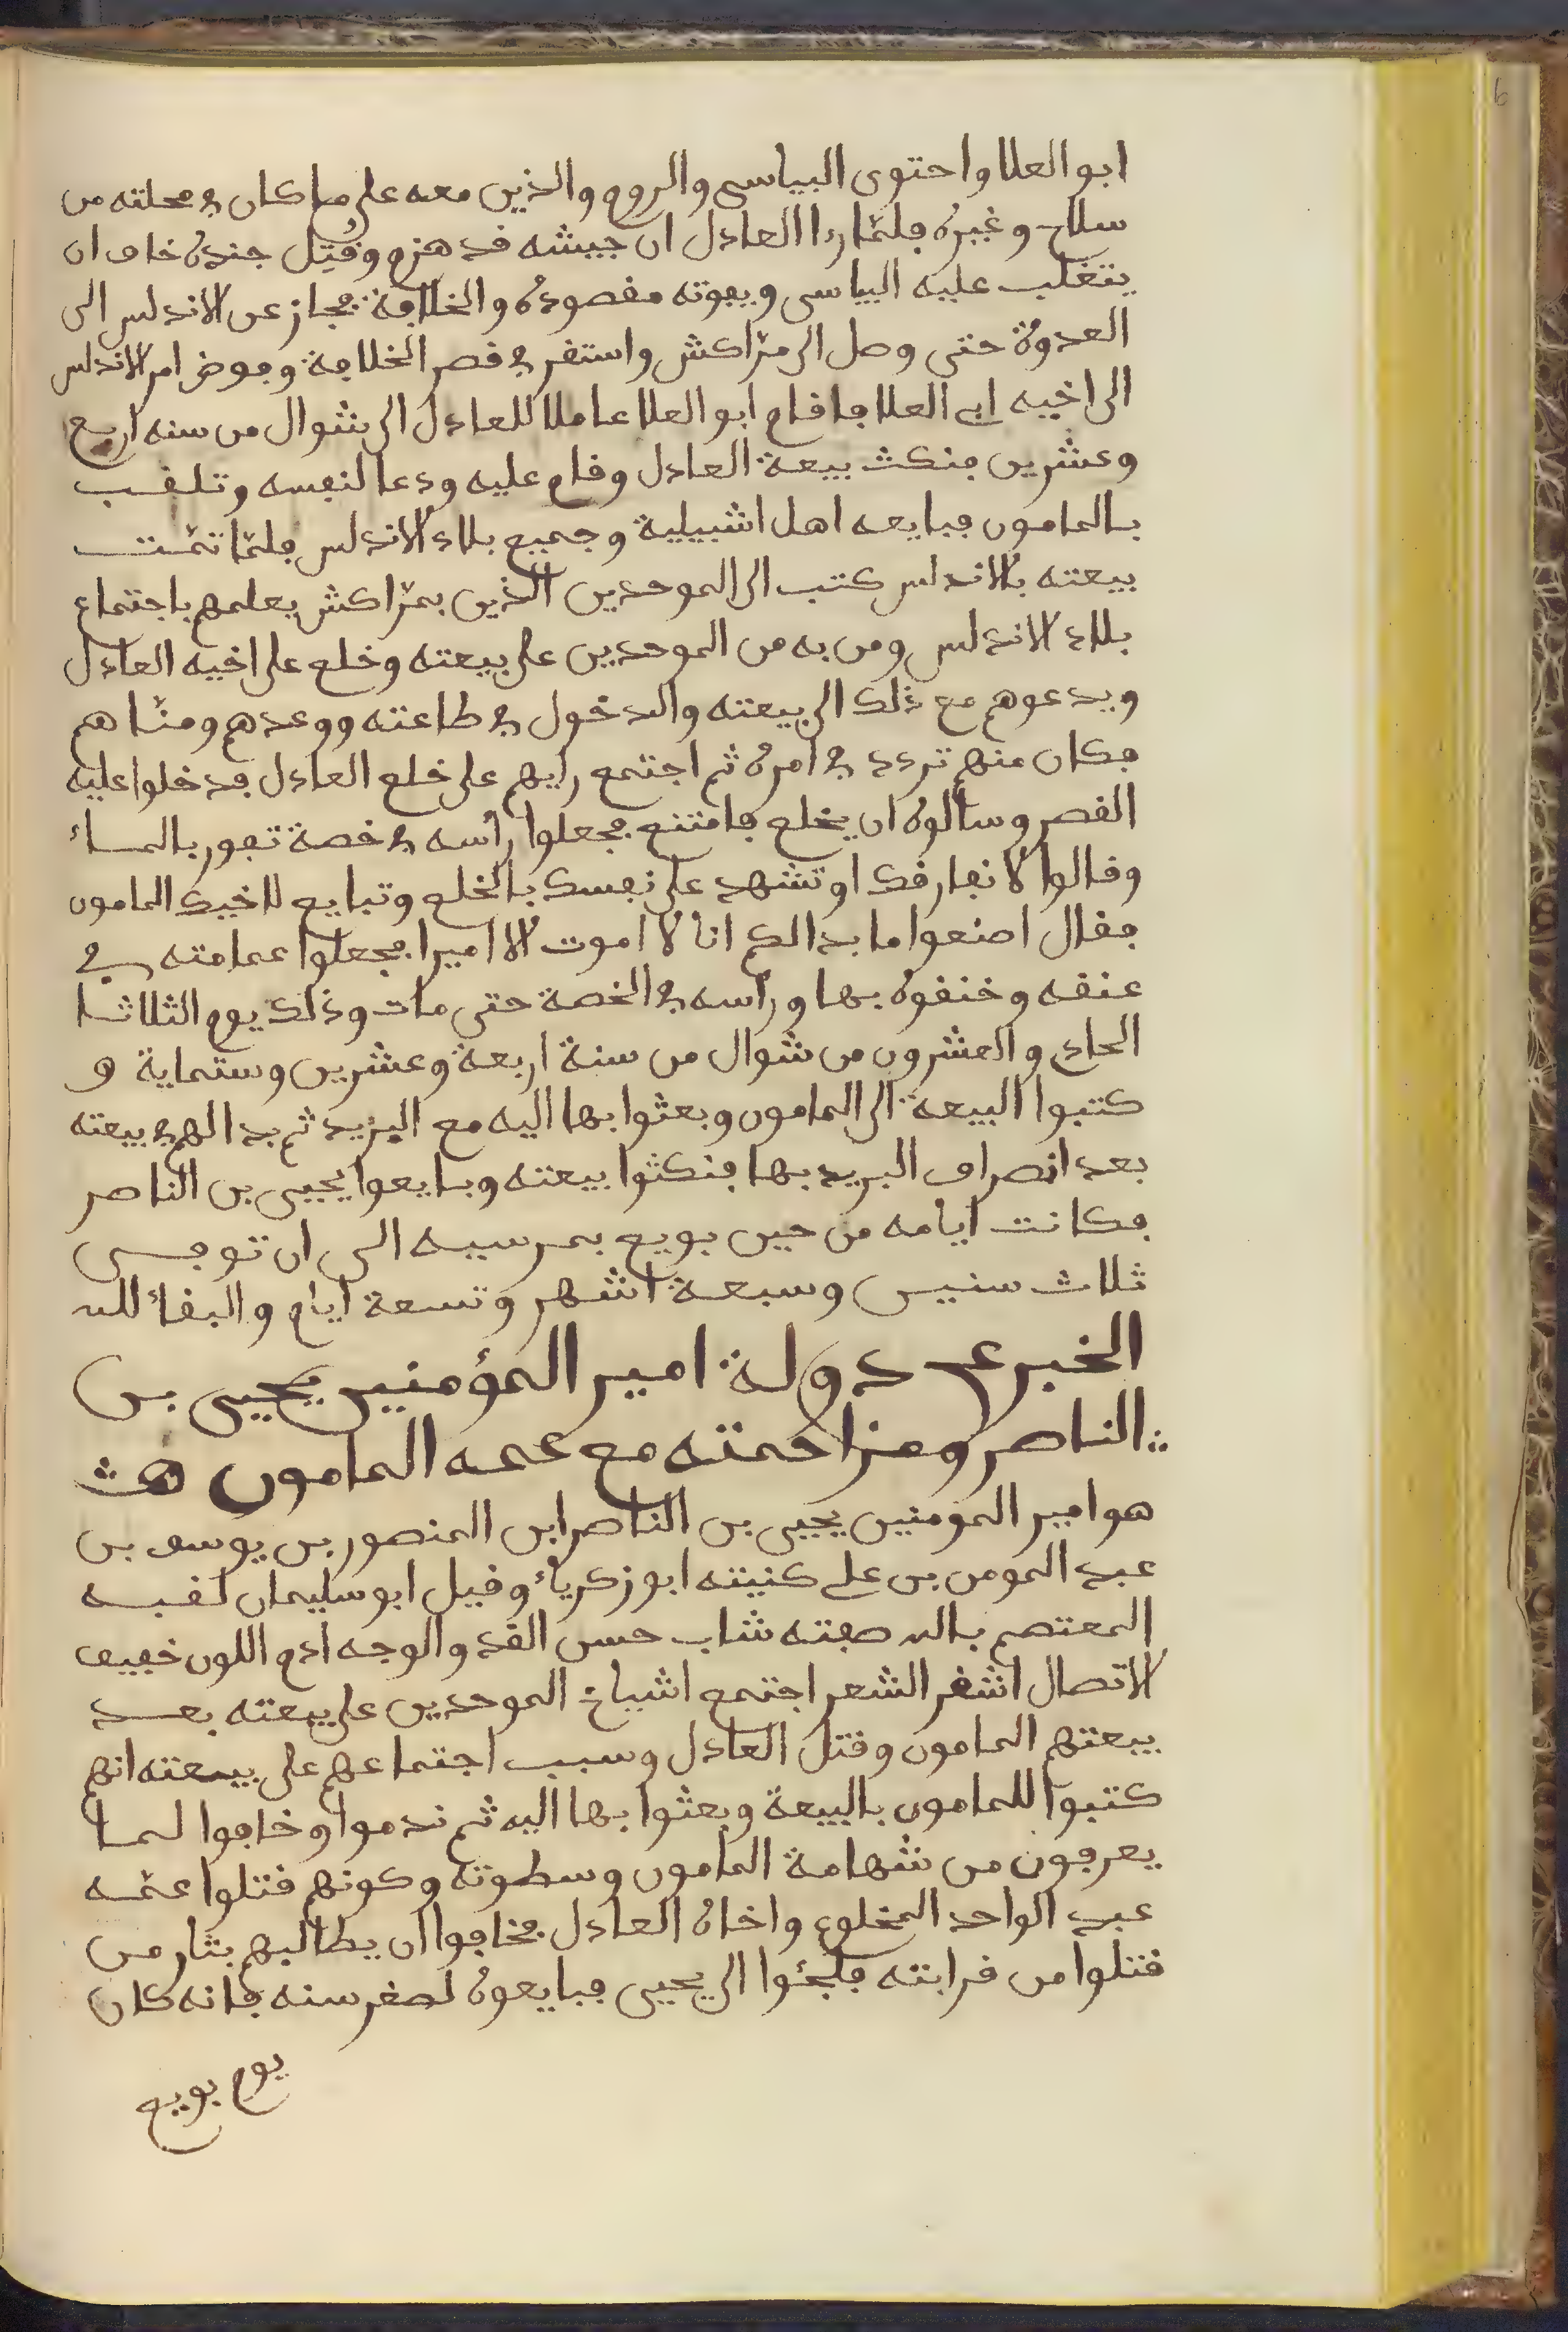 ابو العلا واحتوى البياسي والروم والذين معه على ما كان في محلته من
سلاح وغيره فلمّا رءا العادل ان جيشه قد هزم وقُتِل جنده خاف ان
يتغلب عليه البياسي ويفوته مقصوده والخلافة فجاز عن الاندلس الى
العدوة حتى وصل الى مرّاكش واستقر في قصر الخلافة وفوض امر الاندلس
الى اخيه ابي العلا فاقام ابو العلا عاملا للعادل الى شوال من سنه اربع
وعشرين فنكث بيعة العادل وقام عليه ودعا لنفسه وتلقب
بالمامون فبايعه اهل اشبيلية وجميع بلاد الاندلس فلمّا تمّت
بيعته بالاندلس كتب الى الموحدين الذين بمرّاكش يعلمهم باجتماع
بلاد الاندلس ومن به من الموحدين على بيعته وخلع على اخيه العادل
ويدعوهم مع ذلك الى بيعته والدخول في طاعته ووعدهم ومنّاهم
فكان منهم تردد في امره ثم اجتمع رايهم على خلع العادل فدخلوا عليه
القصر وسألوه ان يخلع فامتنع فجعلوا رأسه في خصة تفور بالماء
وقالوا لا نفارقك او تشهد على نفسك بالخلع وتبايع لاخيك المامون
فقال اصنعوا ما بدا لكم انا لا اموت الا اميرا فجعلوا عمامته في
عنقه وخنقوه بها ورأسه في الخصة حتى مات وذلك يوم الثلاثا
الحادي والعشرون من شوال من سنة اربعة وعشرين وستماية و
كتبوا البيعة الى المامون وبعثوا بها اليه مع البريد ثم بدا لهم في بيعته
بعد انصراف البريد بها فنكثوا بيعته وبايعوا يحيى بن الناصر
فكانت ايامه من حين بويع بمرسيه الى ان توفى
ثلاث سنين وسبعة اشهر وتسعة ايام والبقاء لله
الخبر عن دولة امير المؤمنين يحيى بن
الناصر ومزاحمته مع عمه المامون
هو امير المومنين يحيى بن الناصر ابن المنصور بن يوسف بن
عبد المومن بن علي كنيته ابو زكرياء وقيل ابو سليمان لقبه
المعتصم بالله صفته شاب حسن القد والوجه ادم اللون خفيف
الاتصال اشقر الشعر اجتمع اشياخ الموحدين على بيعته بعد
بيعتهم المامون وقتل العادل وسبب اجتماعهم على بيعته انهم
كتبوا للمامون بالبيعة وبعثوا بها اليه ثم ندموا وخافوا لما
يعرفون من شهامة المامون وسطوته وكونهم قتلوا عمّه
عبد الواحد المخلوع واخاه العادل فخافوا ان يطالبهم بثار من
قتلوا من قرابته فلجئوا الى يحيى فبايعوه لصغر سنه فانه كان
يوم بويع